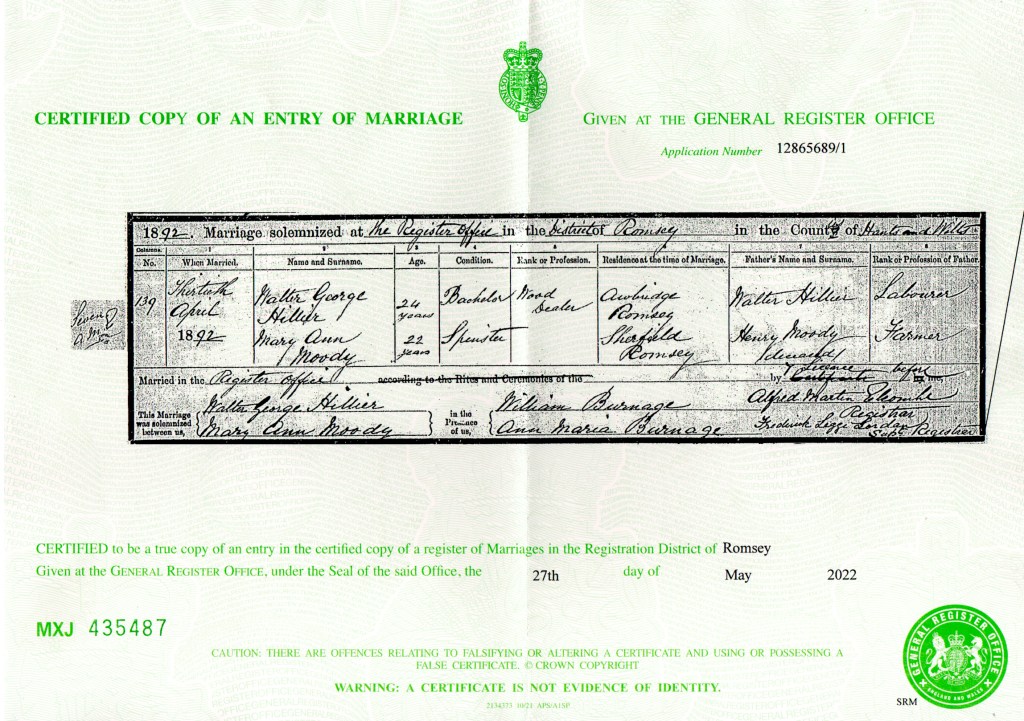 CERTIFIED COPY OF AN ENTRY OF MARRIAGE
GIVEN AT THE GENERAL REGISTER OFFICE
Application Number 12865689/1
1892. Marriage solemnized at the Register Office in the District of Romsey in the County of Hants and Wilts
Columns. 1 2 3 4 5 6 7 8
No. When Married. Name and Surname. Age. Condition. Rank or Profession. Residence at the time of Marriage. Father's Name and Surname. Rank or Profession of Father.
139 Thirtieth Walter George 24 Bachelor Wood Awbridge Walter Hillier Labourer
April Hillier years Dealer Romsey
1892 Mary Ann 22 Spinster Sherfield Henry Moody Farmer
Moody years Romsey (deceased)
Married in the Register Office according to the Rites and Ceremonies of the by Licence before me,
This Marriage was solemnized between us,
Walter George Hillier
Mary Ann Moody
in the Presence of us,
William Burnage
Ann Maria Burnage
Alfred Martin
Registrar
Frederick Legge Lordan
Supt Registrar
CERTIFIED to be a true copy of an entry in the certified copy of a register of Marriages in the Registration District of Romsey
Given at the GENERAL REGISTER OFFICE, under the Seal of the said Office, the 27th day of May 2022
MXJ 435487
CAUTION: THERE ARE OFFENCES RELATING TO FALSIFYING OR ALTERING A CERTIFICATE AND USING OR POSSESSING A
FALSE CERTIFICATE. © CROWN COPYRIGHT
WARNING: A CERTIFICATE IS NOT EVIDENCE OF IDENTITY.
2134373 10/21 APS/A1SP
GENERAL REGISTER OFFICE
ENGLAND AND WALES
SRM